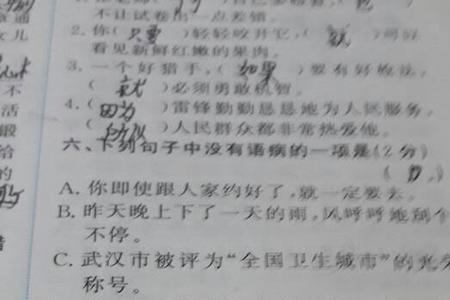 不让试卷出一点差错。
2. 你(只要)轻轻咬开它,(就)可以
看见新鲜红嫩的果肉。
3. 一个好猎手,(如果)要有好枪法,
(就)必须勇敢机智。
4. (因为)雷锋勤勤恳恳地为人民服务,
(所以)人民群众都非常热爱他。
六、下列句子中没有语病的一项是(2分)
A. 你即使跟人家约好了,就一定要去。
B. 昨天晚上下了一天的雨,风呼呼地刮个
不停。
C. 武汉市被评为“全国卫生城市”的光
称号。